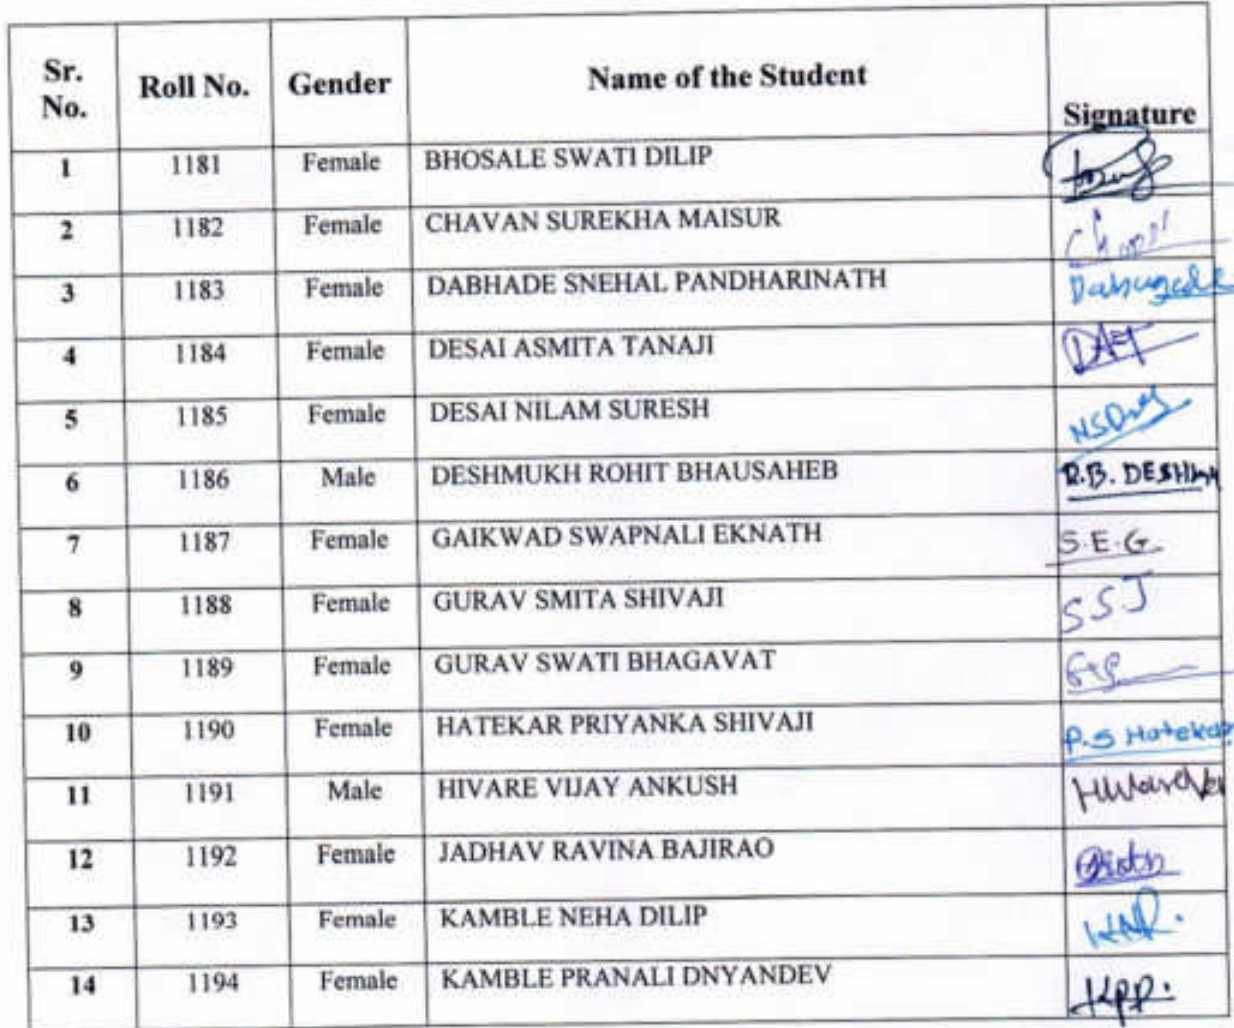 Sr. No. Roll No. Gender Name of the Student Signature
1 1181 Female BHOSALE SWATI DILIP
2 1182 Female CHAVAN SUREKHA MAISUR
3 1183 Female DABHADE SNEHAL PANDHARINATH
4 1184 Female DESAI ASMITA TANAJI DAT
5 1185 Female DESAI NILAM SURESH
6 1186 Male DESHMUKH ROHIT BHAUSAHEB R.B. DESHM
7 1187 Female GAIKWAD SWAPNALI EKNATH S.E.G.
8 1188 Female GURAV SMITA SHIVAJI SSJ
9 1189 Female GURAV SWATI BHAGAVAT
10 1190 Female HATEKAR PRIYANKA SHIVAJI P.S Hatekar
11 1191 Male HIVARE VIJAY ANKUSH
12 1192 Female JADHAV RAVINA BAJIRAO
13 1193 Female KAMBLE NEHA DILIP
14 1194 Female KAMBLE PRANALI DNYANDEV KPP.